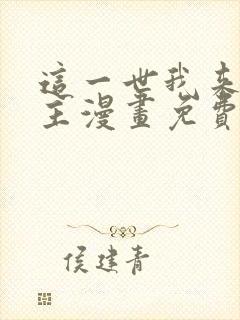 這一世我來
主漫畫免費
侯建青